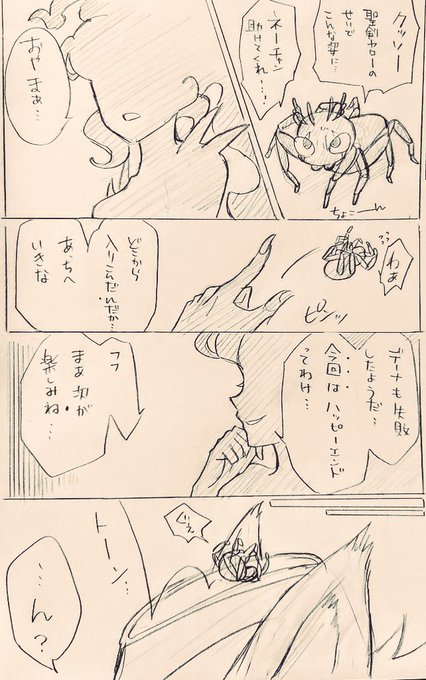 クッソー
聖剣ヤローの
せいで
こんな姿に…
ネーチャン
助けてくれ…!
ちょこーん
おや
まぁ…
わぁ
ピンッ
どこから
入りこんだんだか…
あっちへ
いきな
デーナも失敗
したようだ…
今回はハッピーエンド
ってわけ…
フフ
まあ次が
楽しみね…
ぐえ
トーン…
…ん?